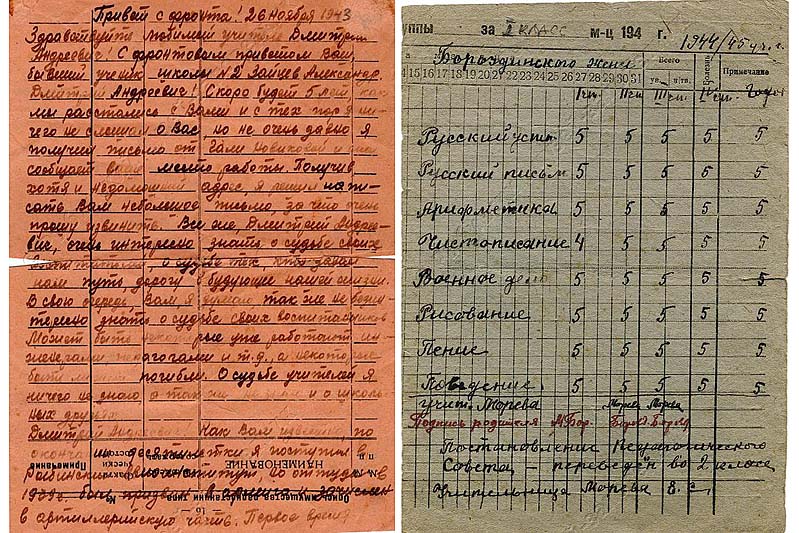 Привет с фронта! 26 ноября 1943
Здравствуйте любимый учитель Дмитрий
Андреевич! С фронтовым приветом Вам,
бывший ученик школы №2 Зайцев Александр.
Дмитрий Андреевич! Скоро будет 5 лет как
мы расстались с Вами и с тех пор я ни-
чего не слышал о Вас, но не очень давно я
получил письмо от Гали Новиковой и она
сообщает ваше место работы. Получив
хотя и недомашний адрес, я решил напи-
сать Вам небольшое письмо, за что очень
прошу извинить. Все же, Дмитрий Андрее-
вич, очень интересно знать о судьбе своих
о судьбе тех, кто
нам путь дорогу в будующее нашей жизни.
В свою очередь Вам я думаю так же не безин-
тересно знать о судьбе своих воспитанников
Может быть некоторые уже работают ин-
женерами педогогами и т.д., а некоторые
быть может погибли. О судьбе учителей я
ничего не знаю а так же и о школь-
ных друзьях
Дмитрий Андреевич! Как Вам известно, по
окончании десятилетки я поступил в
институт, но оттуда в
1939г. был призван в армию и зачислен
в артиллерийскую часть. Первое время
НАИМЕНОВАНИЕ
Примечание
уппы за I класс м-ц 194 г. 1944/45 уч. г.
Бороздинского Жени
Всего
Болезни
Примечание
14 15 16 17 18 19 20 21 22 23 24 25 26 27 28 29 30 31
Iчет. IIчет. IIIчет. IVчет. Годов
Русский устн 5 5 5 5 5
Русский письм 5 5 5 5 5
Арифметика 5 5 5 5 5
Чистописание 4 5 5 5 5
Военное дело 5 5 5 5 5
Рисование 5 5 5 5 5
Пение 5 5 5 5 5
Поведение 5 5 5 5 5
Учит. Морева Морева Морева
Подпись родителя М.Бор. Бор М. Бор М
Постановление Педагогического
Совета — переведён во 2 класс
Учительница Морева Е. с.